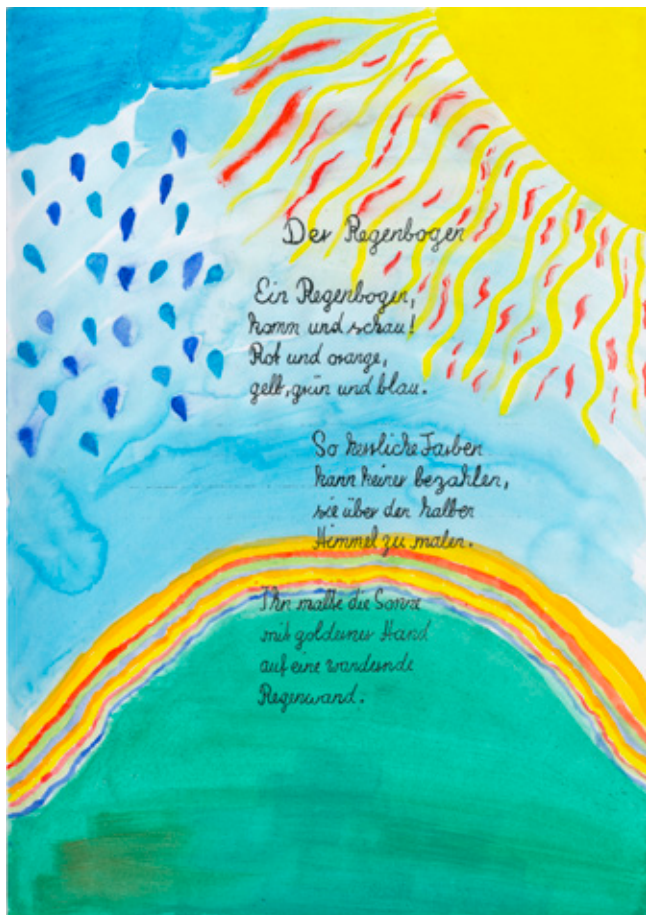 Der Regenbogen
Ein Regenbogen,
komm und schau!
Rot und orange,
gelb, grün und blau.
So herrliche Farben
kann keiner bezahlen,
sie über den halben
Himmel zu malen.
Ihn malte die Sonne
mit goldener Hand
auf eine wandernde
Regenwand.